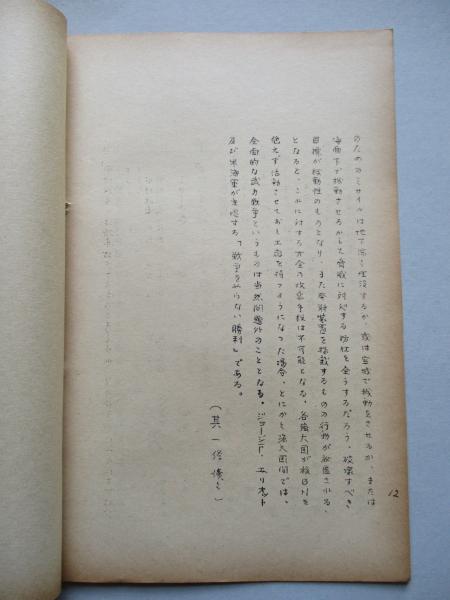 のためのミサイルは地下深く埋没するか、或は空域で機動をさせるか、または
海面下で機動させるかして脅威に対処する防衛を全うするだろう。破壊すべき
目標が機動性のものとなり、また発射装置を搭載するものの行動が秘匿される
となると、これに対する万全の攻撃手段は不可能となる。各強大国が
絶えず活動させておく工夫を持つようになった場合、とにかく強大国間では、
全面的な武力戦争というものは当然問題外のこととなる。ジョージ・エリオット
及び米海軍が主唱する「戦争をやらない勝利」である。
(其一 終
12